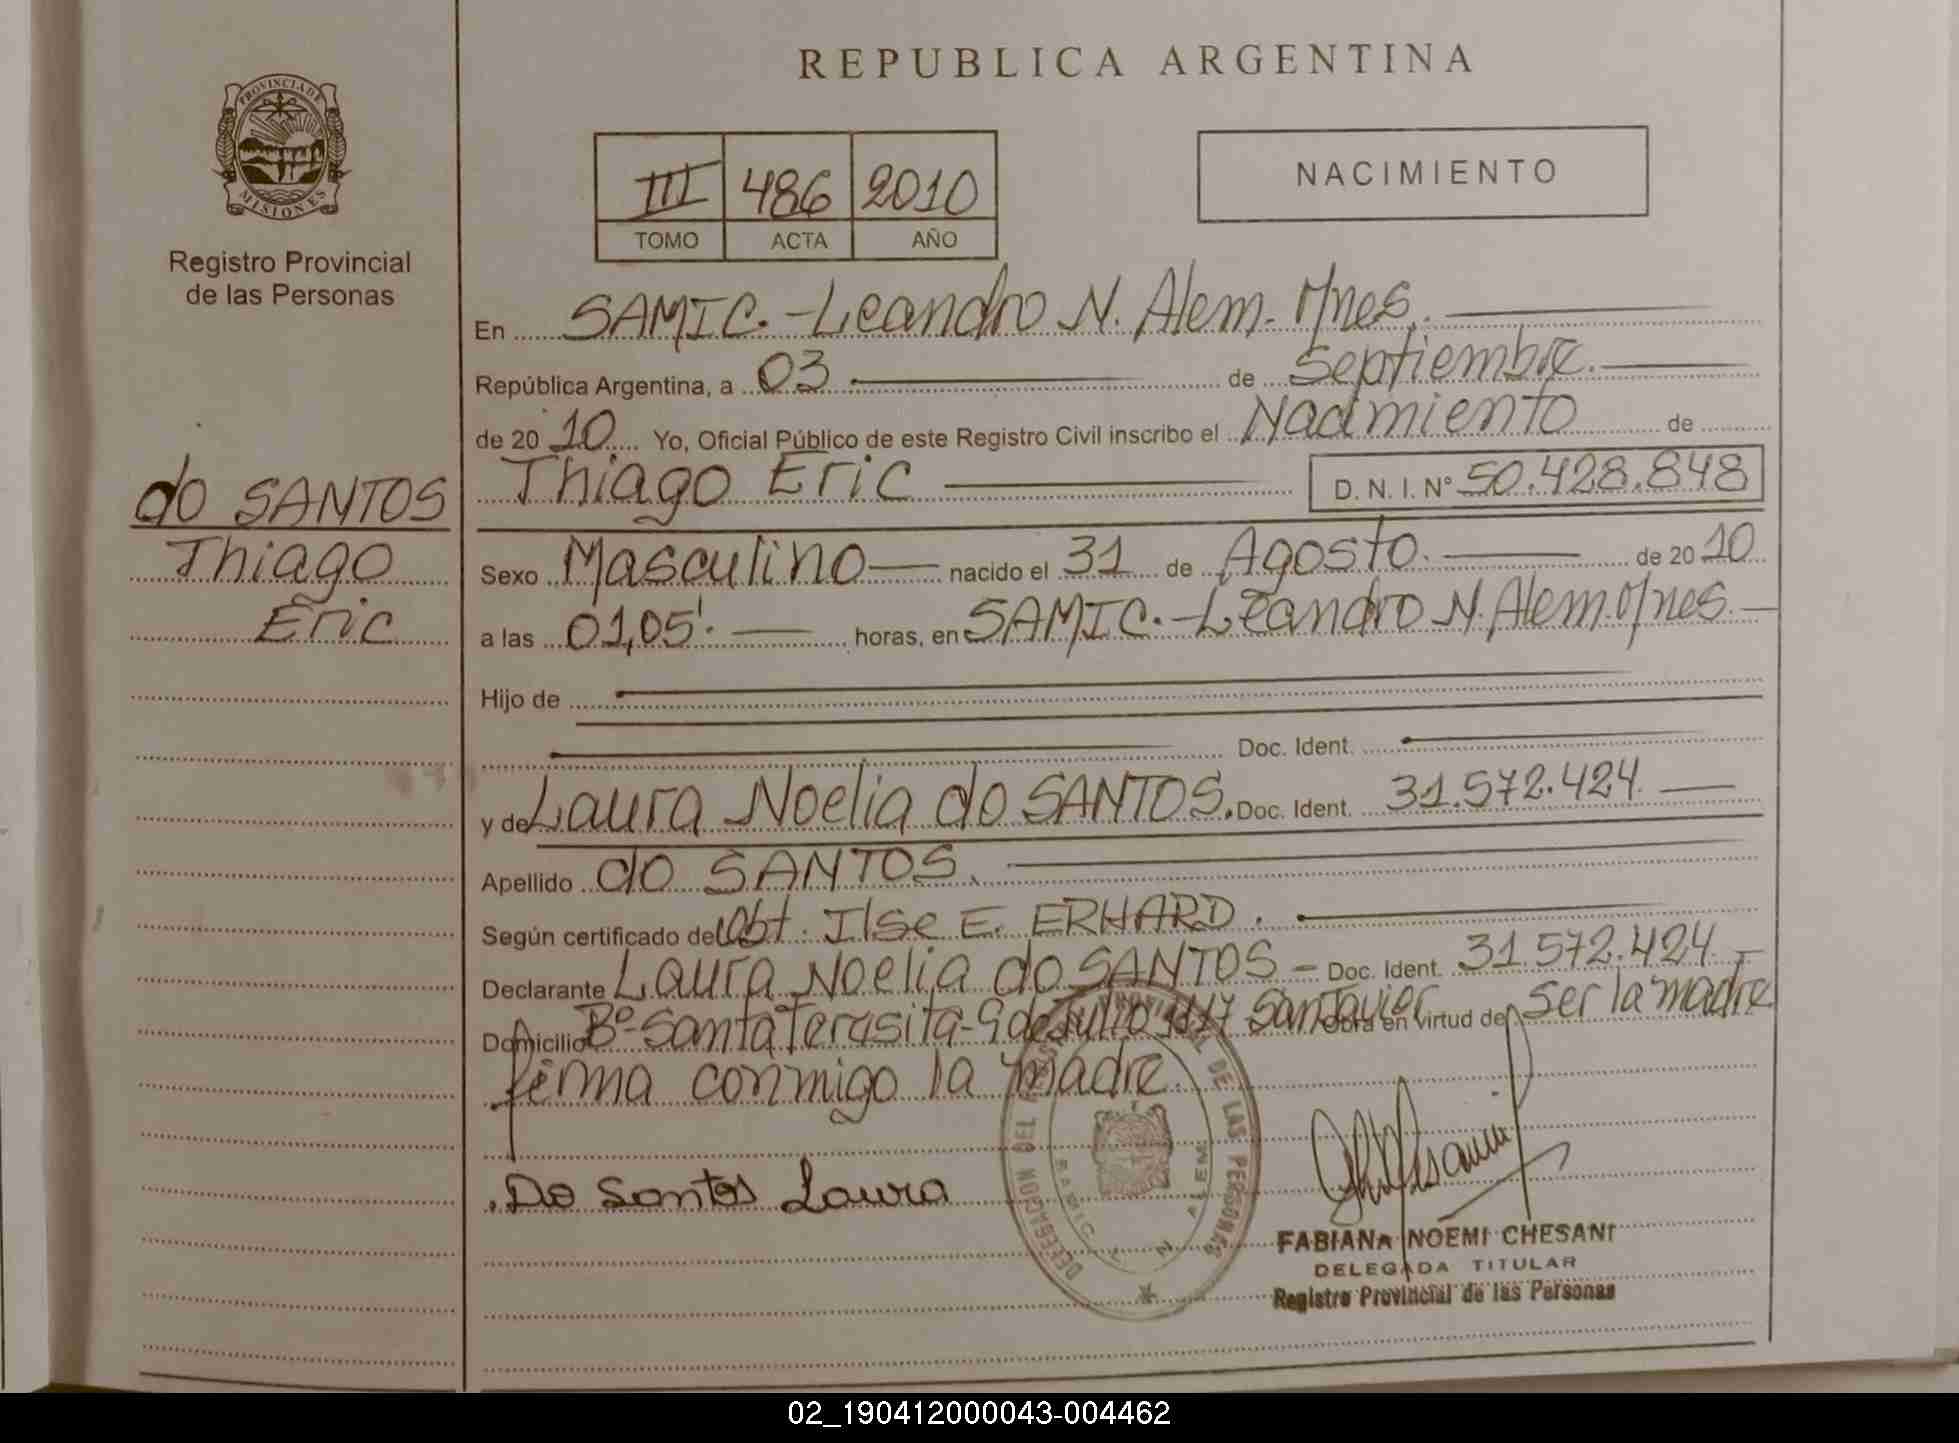 PROVINCIA DE
MISIONES
Registro Provincial
de las Personas
do SANTOS
Thiago
Eric
REPUBLICA ARGENTINA
III 486 2010
TOMO ACTA AÑO
NACIMIENTO
En SAMIC.-Leandro N. Alem. Mnes.
República Argentina, a 03 de Septiembre.
de 20 10 Yo, Oficial Público de este Registro Civil inscribo el Nacimiento de
Thiago Eric D. N. I. N° 50.428.848
Sexo Masculino nacido el 31 de Agosto. de 20 10
a las 01,05'. horas, en SAMIC.-Leandro N. Alem. Mnes.
Hijo de
Doc. Ident.
y de Laura Noelia do SANTOS. Doc. Ident. 31.572.424.
Apellido do SANTOS.
Según certificado del Obt. Ilse E. ERHARD.
Declarante Laura Noelia do SANTOS - Doc. Ident. 31.572.424.
Domicilio B°-Santa Terasita-9 de Julio 1117 San Javier Obra en virtud de ser la madre
firma conmigo la madre.
Do Santos Laura
DELEGACION DEL REGISTRO PROVINCIAL DE LAS PERSONAS
SAMIC L. N. ALEM
FABIANA NOEMI CHESANI
DELEGADA TITULAR
Registro Provincial de las Personas
02_190412000043-004462